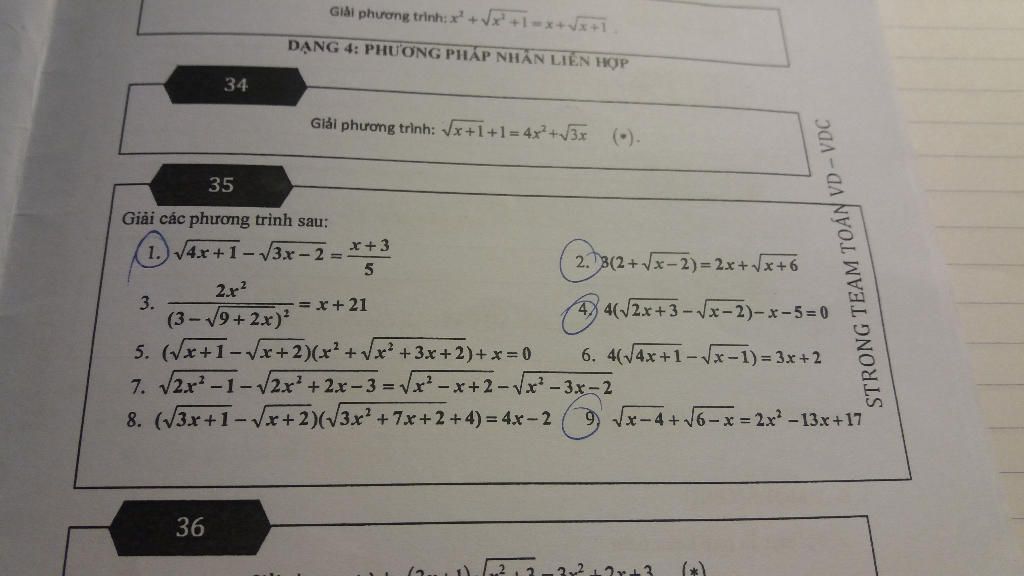 Giải phương trình: x² + √(x² + 1) = x + √(x+1) .
DẠNG 4: PHƯƠNG PHÁP NHÂN LIÊN HỢP
34
Giải phương trình: √(x+1) + 1 = 4x² + √(3x) (*).
35
Giải các phương trình sau:
1. √(4x+1) − √(3x−2) = (x+3)/5
2. 3(2+√(x−2)) = 2x + √(x+6)
3. 2x²/(3−√(9+2x))² = x + 21
4. 4(√(2x+3) − √(x−2)) − x − 5 = 0
5. (√(x+1) − √(x+2))(x² + √(x²+3x+2)) + x = 0
6. 4(√(4x+1) − √(x−1)) = 3x + 2
7. √(2x²−1) − √(2x²+2x−3) = √(x²−x+2) − √(x²−3x−2)
8. (√(3x+1) − √(x+2))(√(3x²+7x+2) + 4) = 4x − 2
9. √(x−4) + √(6−x) = 2x² − 13x + 17
STRONG TEAM TOÁN VD – VDC
36